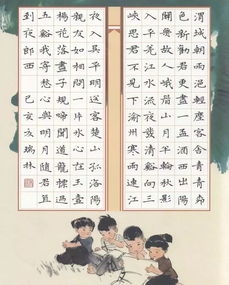 渭城朝雨浥輕塵客舍青青柳
色新勸君更盡一盃酒西出陽
關無故人峨眉山月半輪秋影
入平羌江水流夜發清溪向三
峽思君不見下渝州寒雨連江
夜入吳平明送客楚山孤洛陽
親友如相問一片冰心在玉壺
楊花落盡子規啼聞道龍標過
五谿我寄愁心與明月隨君直
到夜郎西 己亥 瑞林